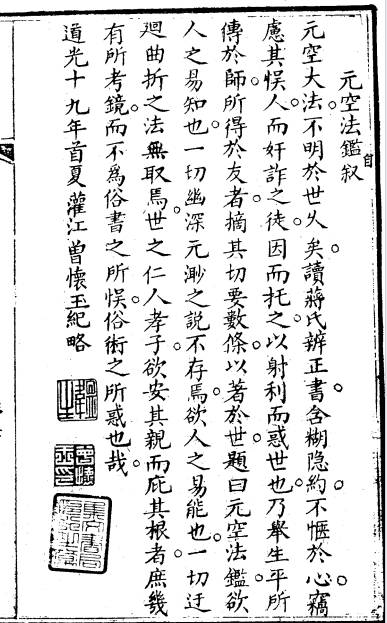 元空法鑑自叙
元空大法不明於世久矣讀蔣氏辨正書含糊隐約不愜於心竊
慮其悮人而奸詐之徒因而托之以射利而惑世也乃舉生平所
傳於師所得於友者摘其切要數條以著於世題曰元空法鑑欲
人之易知也一切幽深元渺之説不存焉欲人之易能也一切迂
廻曲折之法無取焉世之仁人孝子欲安其親而庇其根者庶幾
有所考鏡而不爲俗書之所悮俗術之所惑也哉
道光十九年首夏灌江曾懷玉紀略